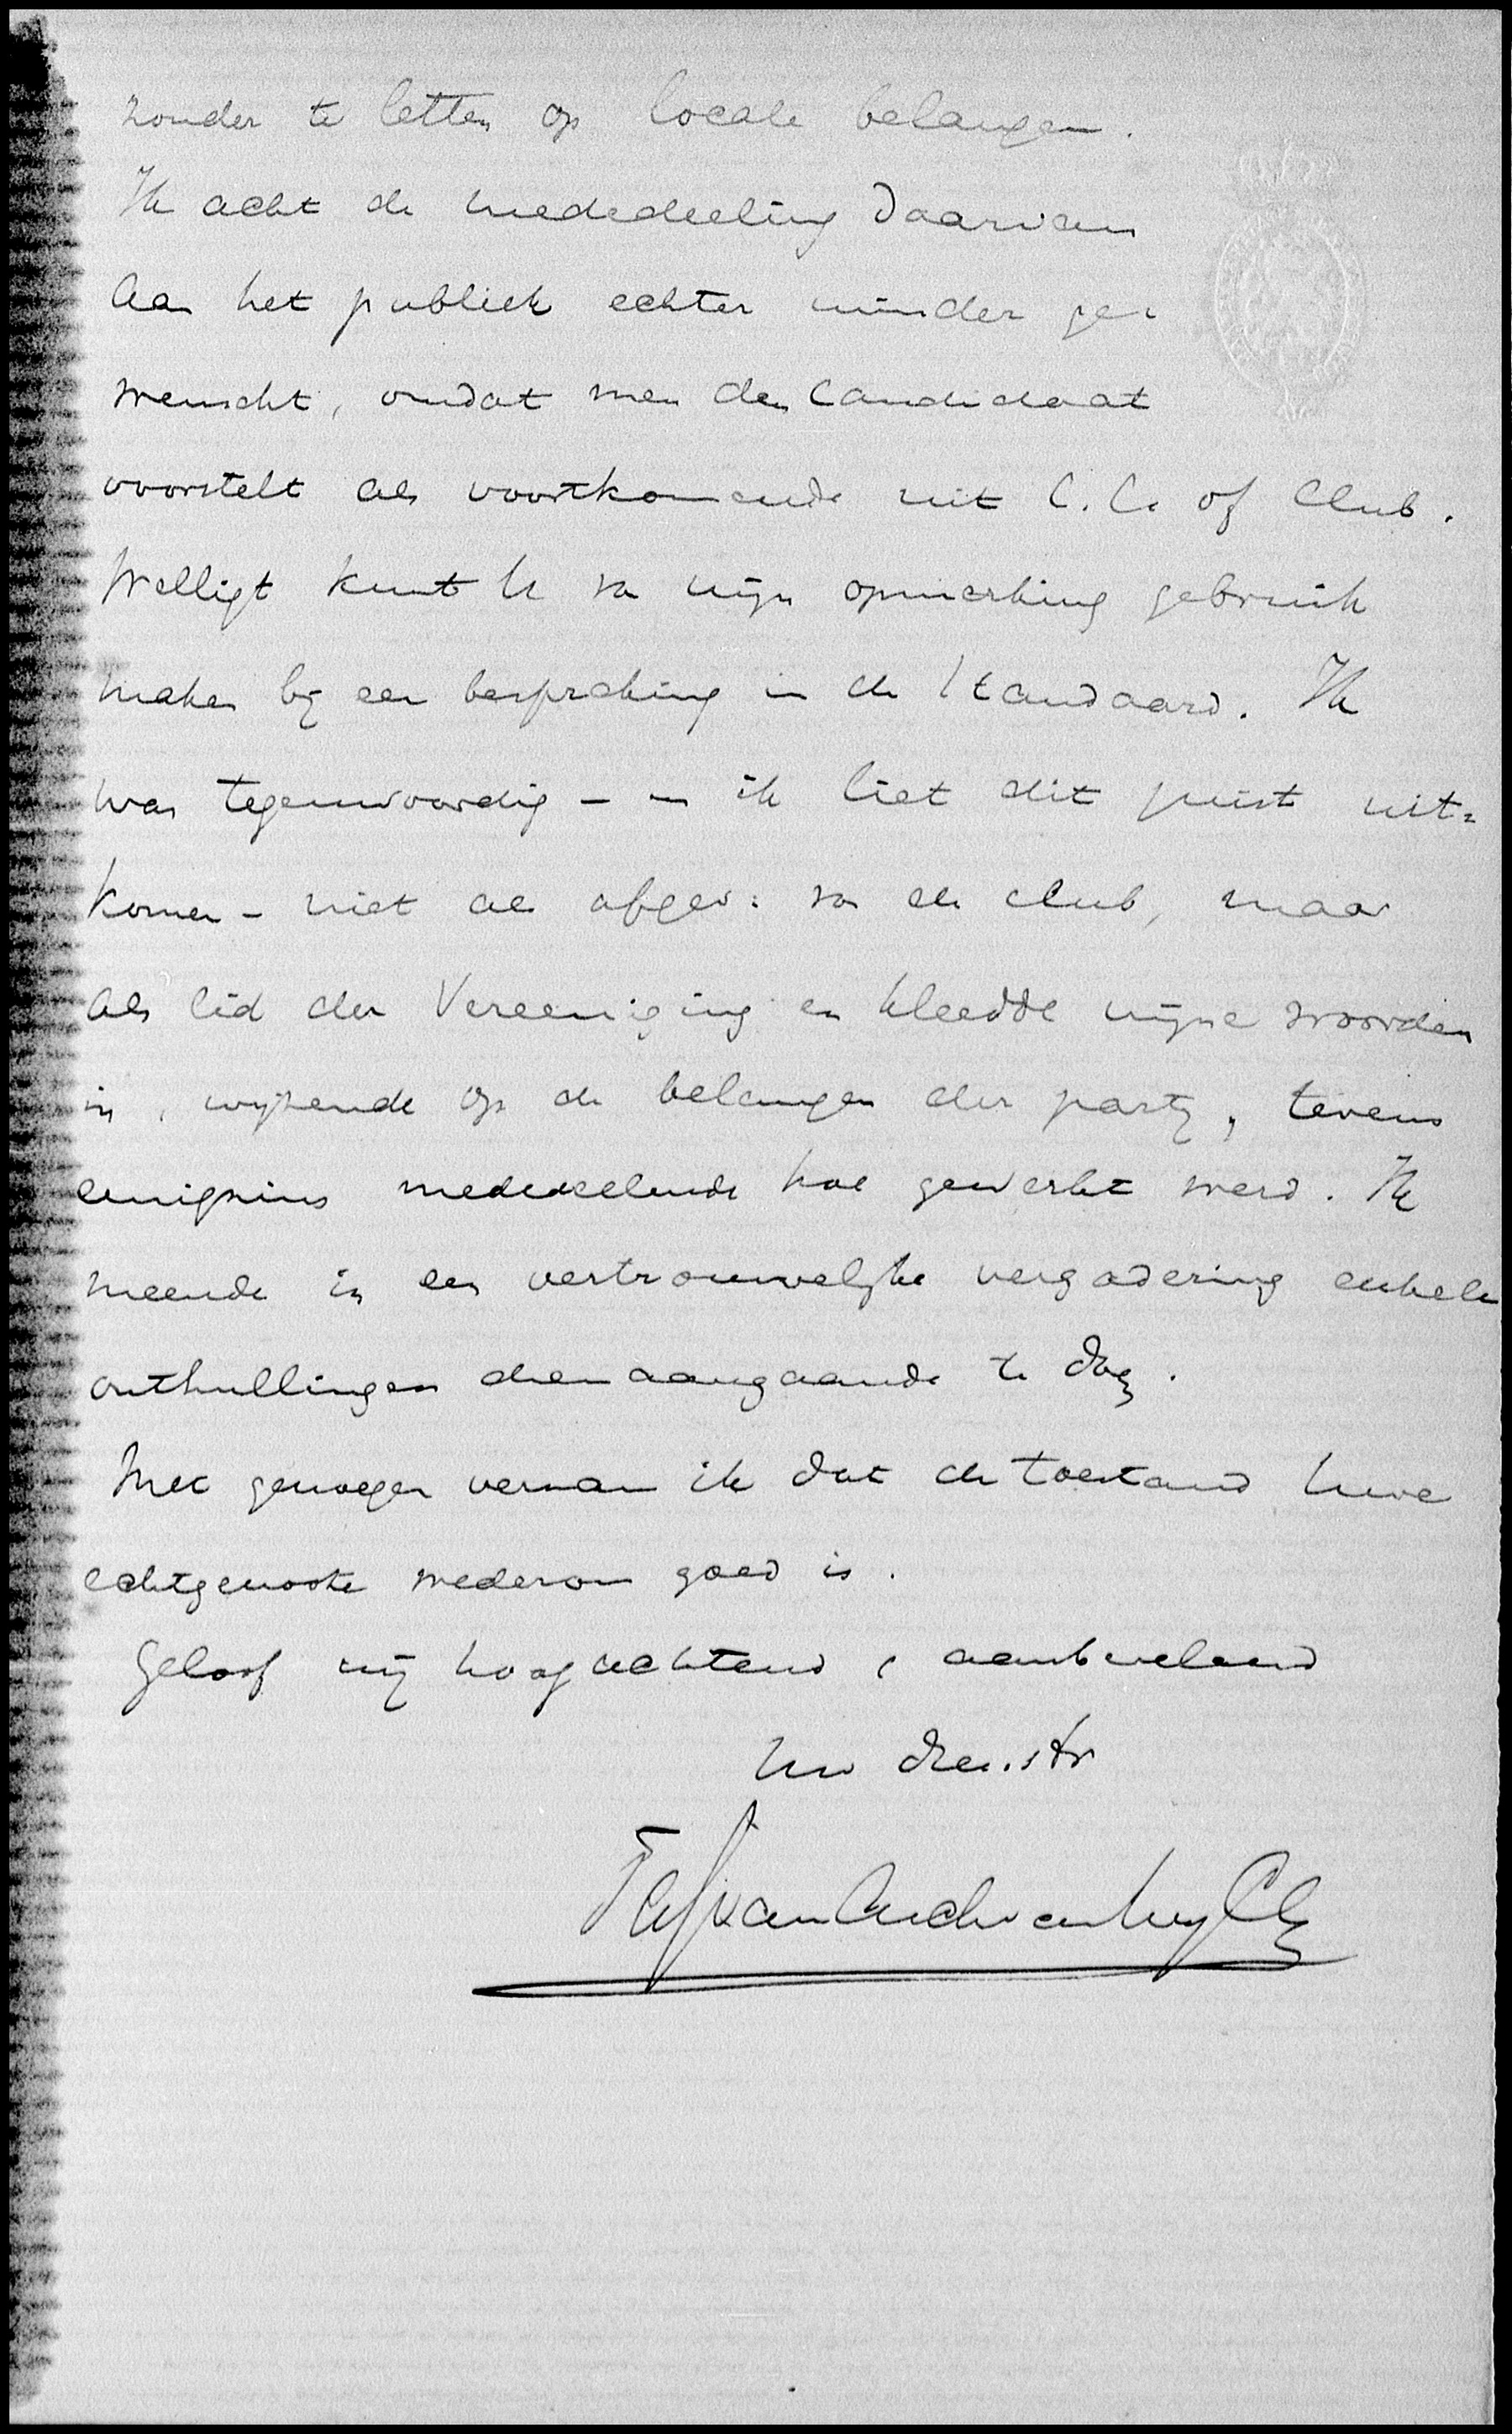 zonder te letten op locale belangen.
Ik acht de mededeeling daarvan
aan het publiek echter minder ge-
wenscht, omdat men den candidaat
voorstelt als voortkomende uit C. C. of Club.
Welligt kunt U van mijn opmerking gebruik
maken bij een bespreking in de Standaard. Ik
was tegenwoordig - en ik liet dit juist uit=
komen - niet als afgev: van de club, maar
als lid der Vereeniging en kleedde mijne woorden
in, wijzende op de belangen der partij, tevens
eenigzins mededeelende hoe gewerkt werd. Ik
meende in een vertrouwelijke vergadering enkele
onthullingen dienaangaande te
Met genoegen vernam ik dat de toestand Uwe
echtgenoote wederom goed is.
Geloof mij hoogachtend, aanbevelend
Uw dienstv